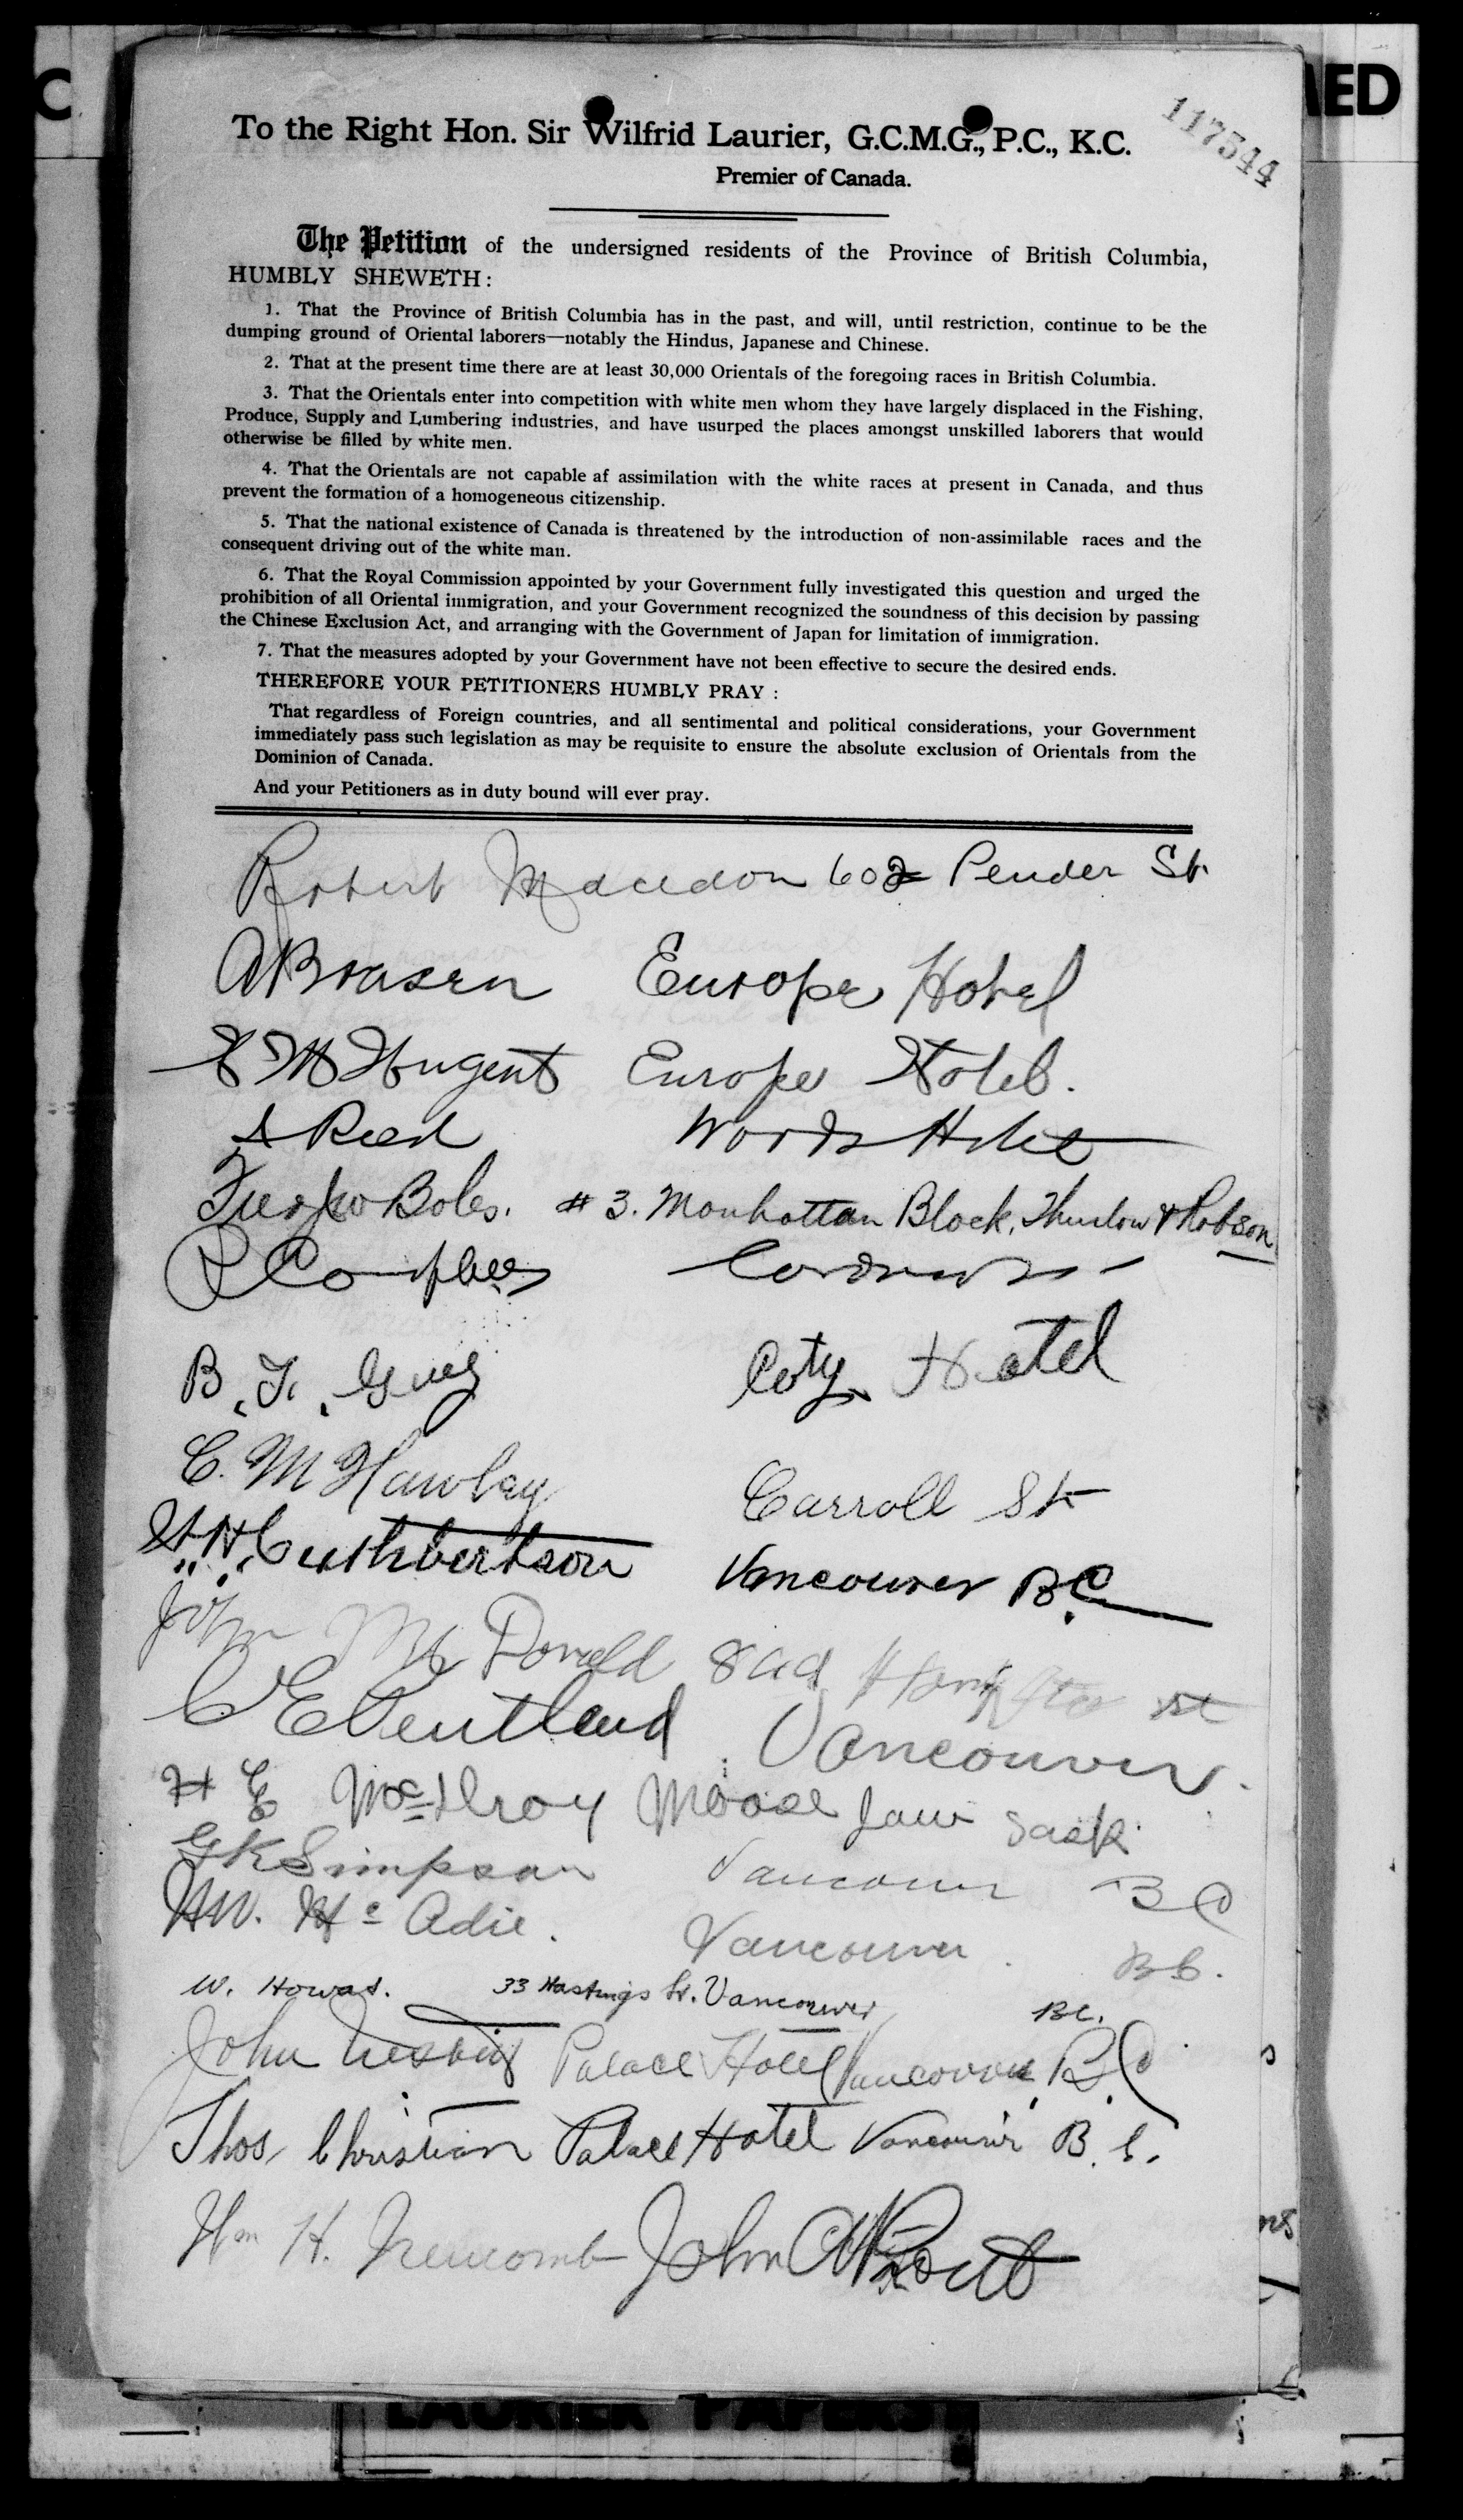 C
MED
117544
To the Right Hon. Sir Wilfrid Laurier, G.C.M.G., P.C., K.C.
Premier of Canada.
The Petition of the undersigned residents of the Province of British Columbia,
HUMBLY SHEWETH:
1. That the Province of British Columbia has in the past, and will, until restriction, continue to be the
dumping ground of Oriental laborers—notably the Hindus, Japanese and Chinese.
2. That at the present time there are at least 30,000 Orientals of the foregoing races in British Columbia.
3. That the Orientals enter into competition with white men whom they have largely displaced in the Fishing,
Produce, Supply and Lumbering industries, and have usurped the places amongst unskilled laborers that would
otherwise be filled by white men.
4. That the Orientals are not capable af assimilation with the white races at present in Canada, and thus
prevent the formation of a homogeneous citizenship.
5. That the national existence of Canada is threatened by the introduction of non-assimilable races and the
consequent driving out of the white man.
6. That the Royal Commission appointed by your Government fully investigated this question and urged the
prohibition of all Oriental immigration, and your Government recognized the soundness of this decision by passing
the Chinese Exclusion Act, and arranging with the Government of Japan for limitation of immigration.
7. That the measures adopted by your Government have not been effective to secure the desired ends.
THEREFORE YOUR PETITIONERS HUMBLY PRAY :
That regardless of Foreign countries, and all sentimental and political considerations, your Government
immediately pass such legislation as may be requisite to ensure the absolute exclusion of Orientals from the
Dominion of Canada.
And your Petitioners as in duty bound will ever pray.
Robert Macedon 602 Pender St.
Europe Hotel
Europe Hotel.
A Reed Woods Hotel
Boles. # 3. Manhattan Block, Thurlow & Robson
B. F. City Hotel
C. M Hawley Carroll St
H. H. Cuthbertson Vancouver B.C.
John McDonald St
C E Pentland Vancouver.
H E McIlroy Moose Jaw Sask.
G K Simpson Vancouver BC
Adie. Vancouver. BC.
W. Howat. 33 Hastings St. Vancouver BC.
John Nesbitt Palace Hotel Vancouver B.C.
Thos. Christian Palace Hotel Vancouver B. C.
Wm H. Newcomb John A Prout
LAURIER PAPERS